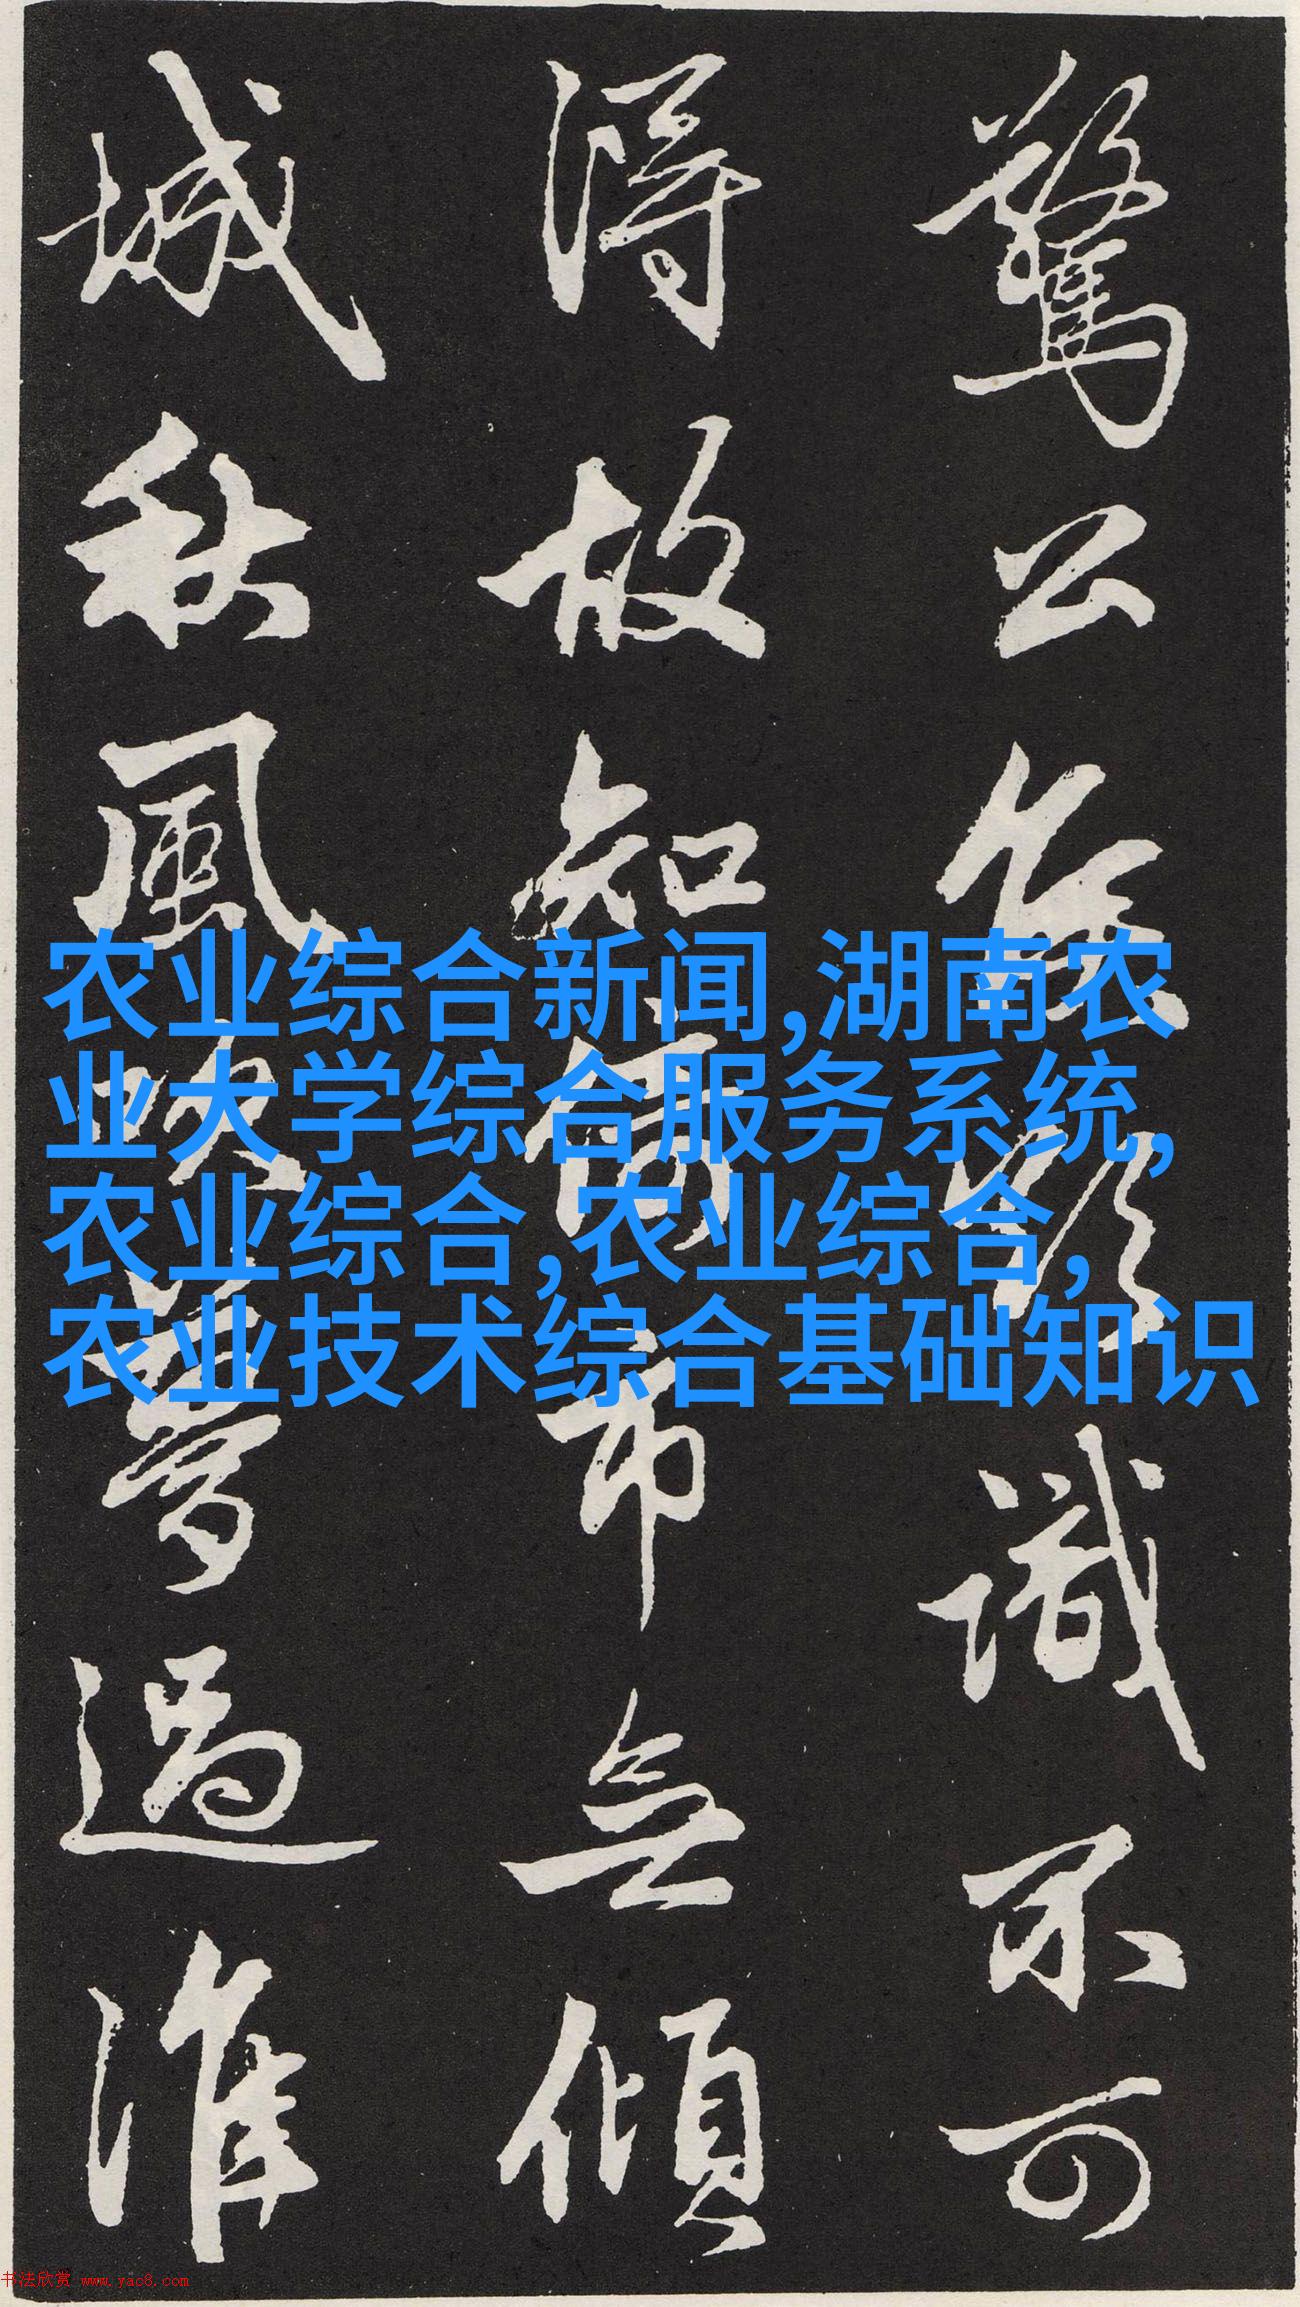 驚公隻頭識不可
得故知何市無傾
城秋風吹夢過淮
农业综合新闻,湖南农
业大学综合服务系统,
农业综合,农业综合,
农业技术综合基础知识
书法欣赏 www.yac8.com